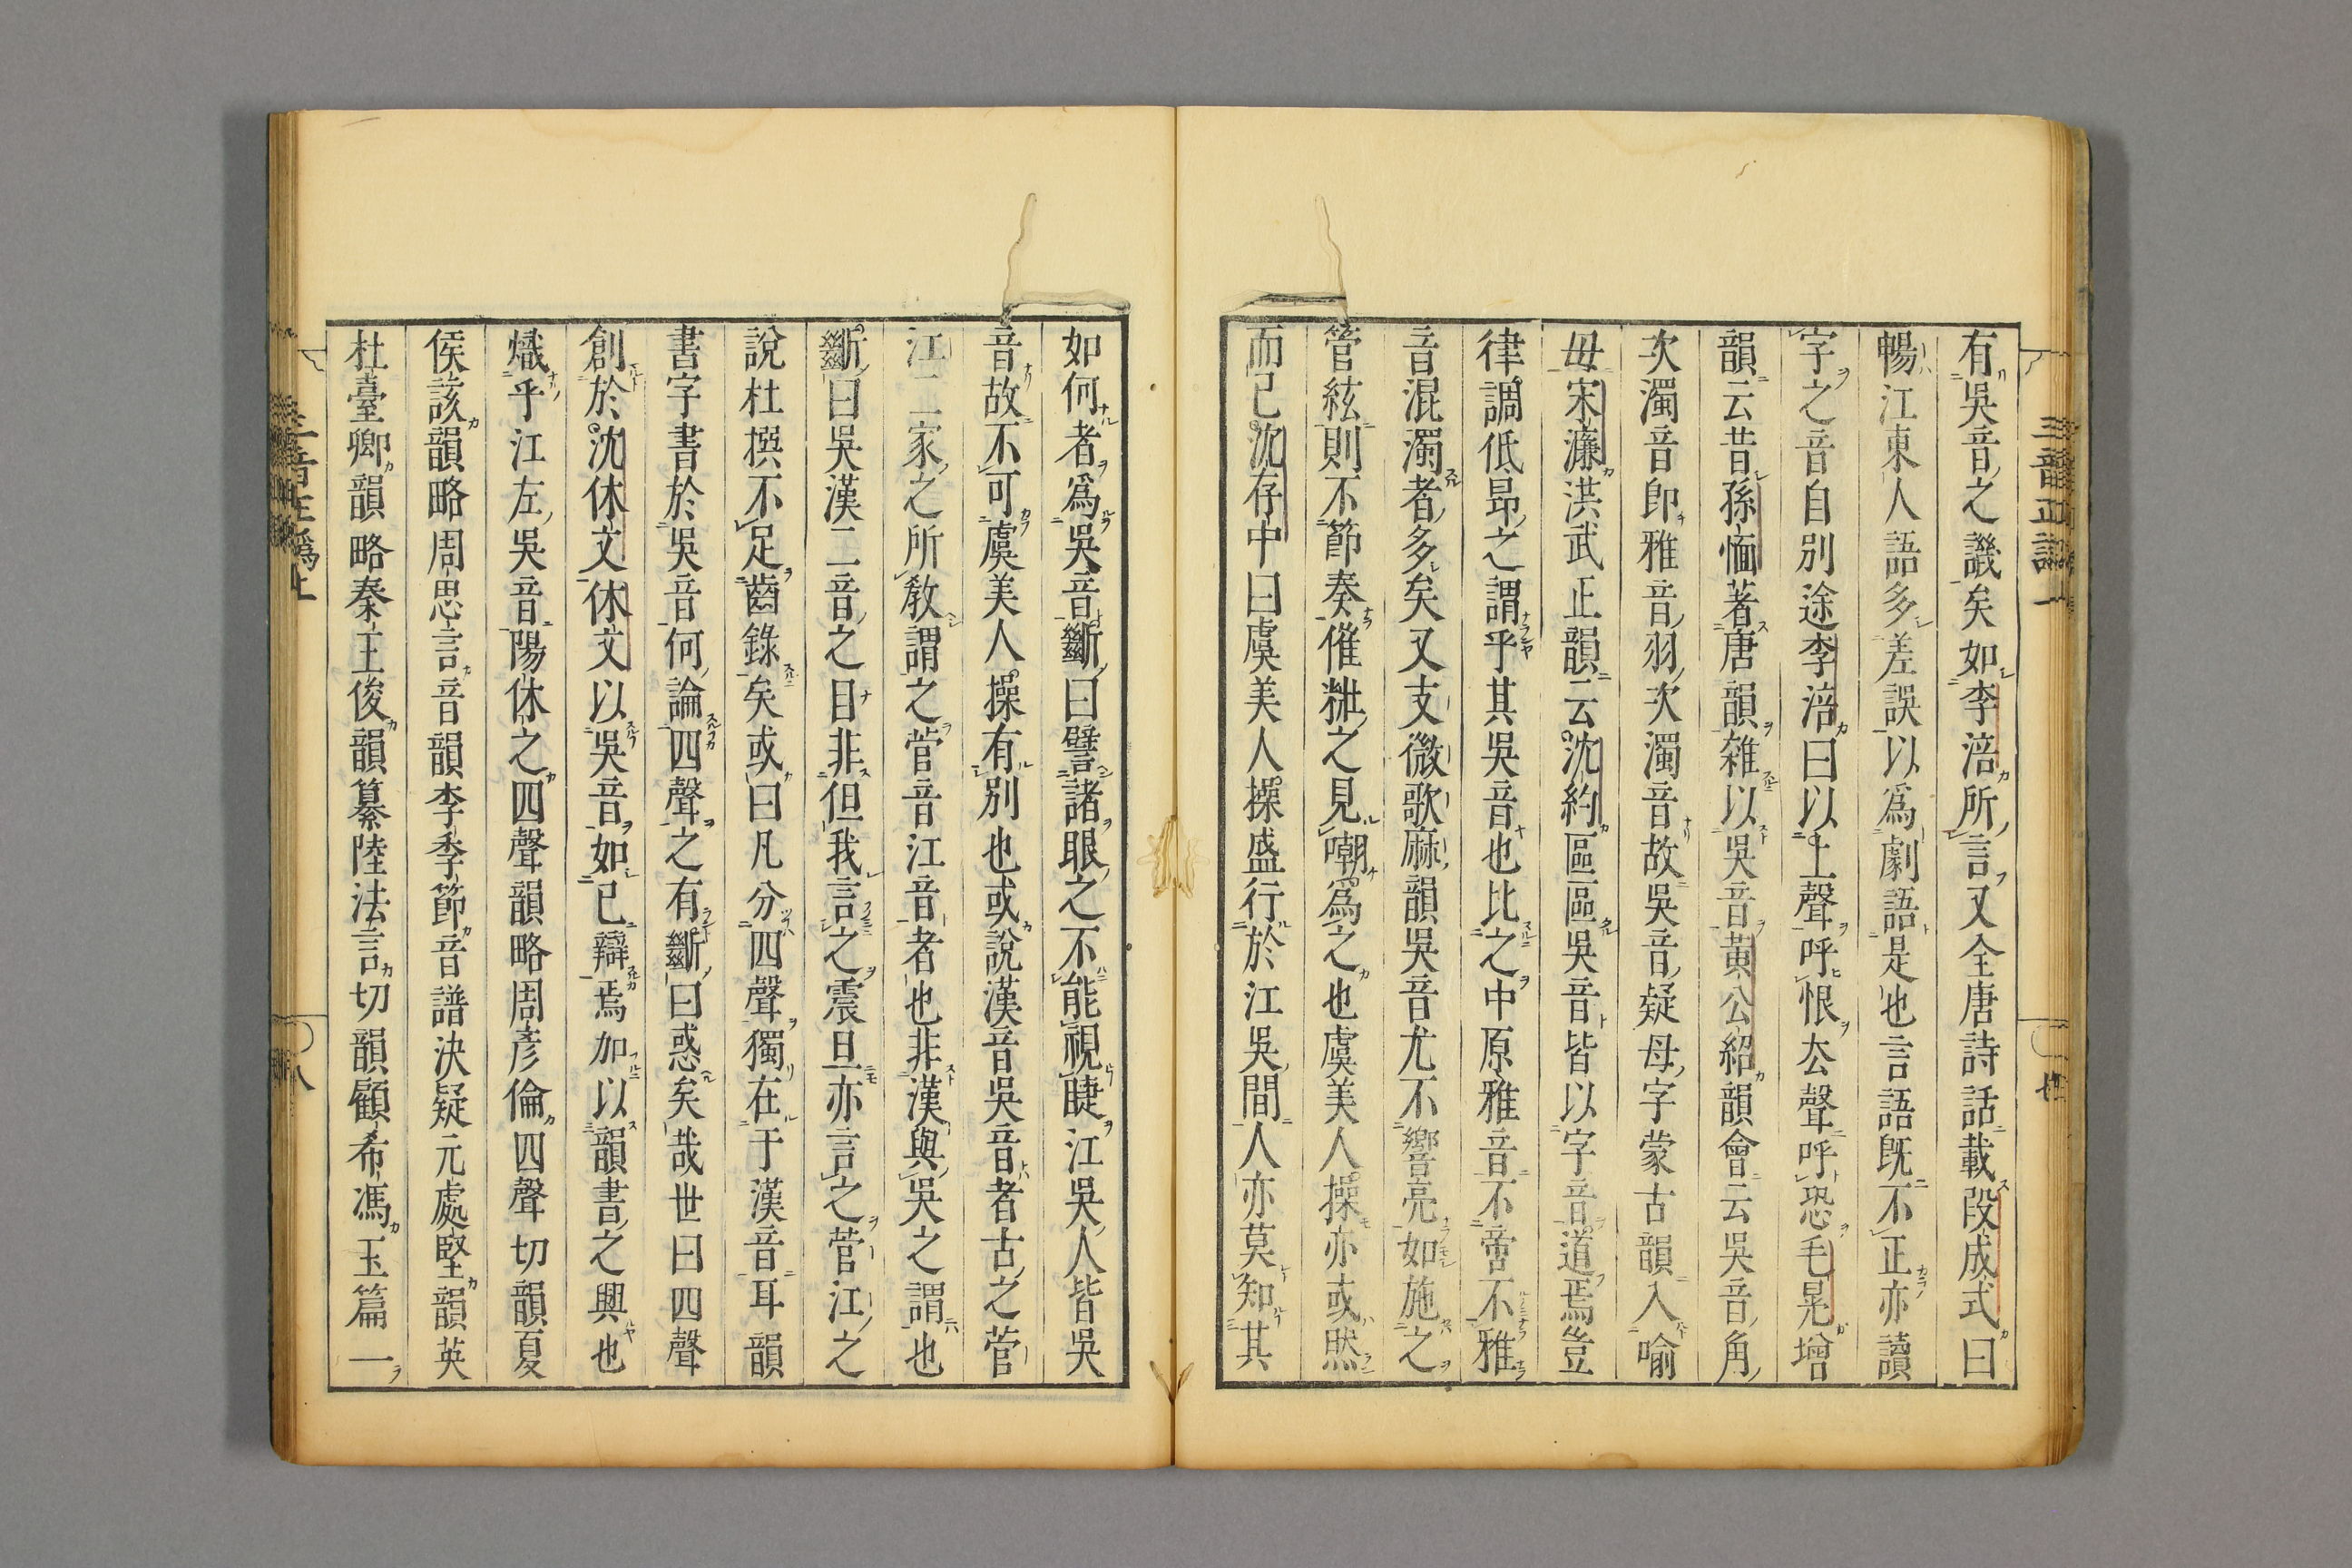 有吳音之譏矣如李涪所言又全唐詩話載段成式曰
暢江東人語多差誤以爲劇語是也言語既不正亦讀
字之音自別途李涪曰以上聲呼恨去聲呼恐毛晃增
韻云昔孫愐著唐韻雜以吳音黄公紹韻會云吳音角
次濁音即雅音羽次濁音故吳音疑母字蒙古韻入喻
母宋濂洪武正韻云沈約區區吳音皆以字音道焉豈
律調低昂之謂乎其吳音也比之中原雅音不啻不雅
音混濁者多矣又支微歌麻韻吳音尤不響亮如施之
管絃則不節奏催粃之見嘲爲之也虞美人操亦或然
而已沈存中曰虞美人操盛行於江吳間人亦莫知其
如何者爲吳音斷曰譬諸眼之不能視睫江吳人皆吳
音故不可虞美人操有別也或說漢音吳音者古之菅
江二家之所教謂之菅音江音者也非漢與吳之謂也
斷曰吳漢二音之目非但我言之震旦亦言之菅江之
說杜撰不足齒錄矣或曰凡分四聲獨在于漢音耳韻
書字書於吳音何論四聲之有斷曰惑矣哉世曰四聲
創於沈休文休文以吳音如已辯焉加以韻書之興也
熾乎江左吳音陽休之四聲韻略周彥倫四聲切韻夏
侯該韻略周思言音韻李季節音譜決疑元處堅韻英
杜臺卿韻略秦王俊韻纂陸法言切韻顧希馮玉篇一